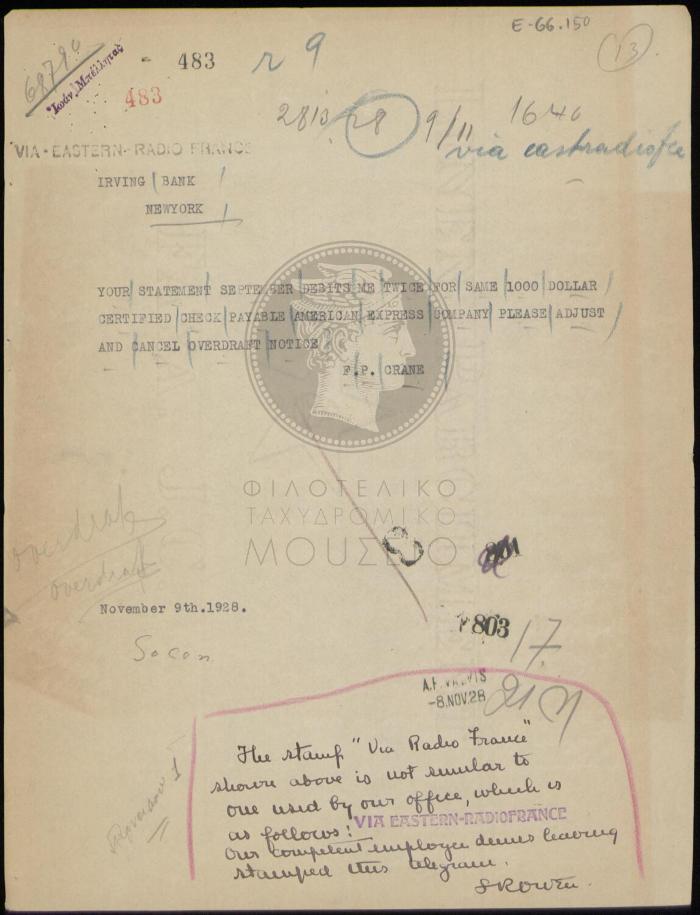 E-66.150
13
68790
Ἰωάν. Μπέλλητας
- 483
r 9
483
2813
28
9/11
1640
VIA-EASTERN-RADIO FRANCE
via eastradiofce
IRVING BANK
NEWYORK
YOUR STATEMENT SEPTEMBER DEBITS ME TWICE FOR SAME 1000 DOLLAR
CERTIFIED CHECK PAYABLE AMERICAN EXPRESS COMPANY PLEASE ADJUST
AND CANCEL OVERDRAFT NOTICE
F.P. CRANE
ΦΙΛΟΤΕΛΙΚΟ
ΤΑΧΥΔΡΟΜΙΚΟ
ΜΟΥΣΕΙΟ
overdraft
overdraft
November 9th.1928.
803
17.
Socon
-8.NOV.28
The stamp "Via Radio France"
shown above is not similar to
one used by our office, which is
as follows: VIA EASTERN-RADIOFRANCE
Our competent employee denies having
stamped this telegram.